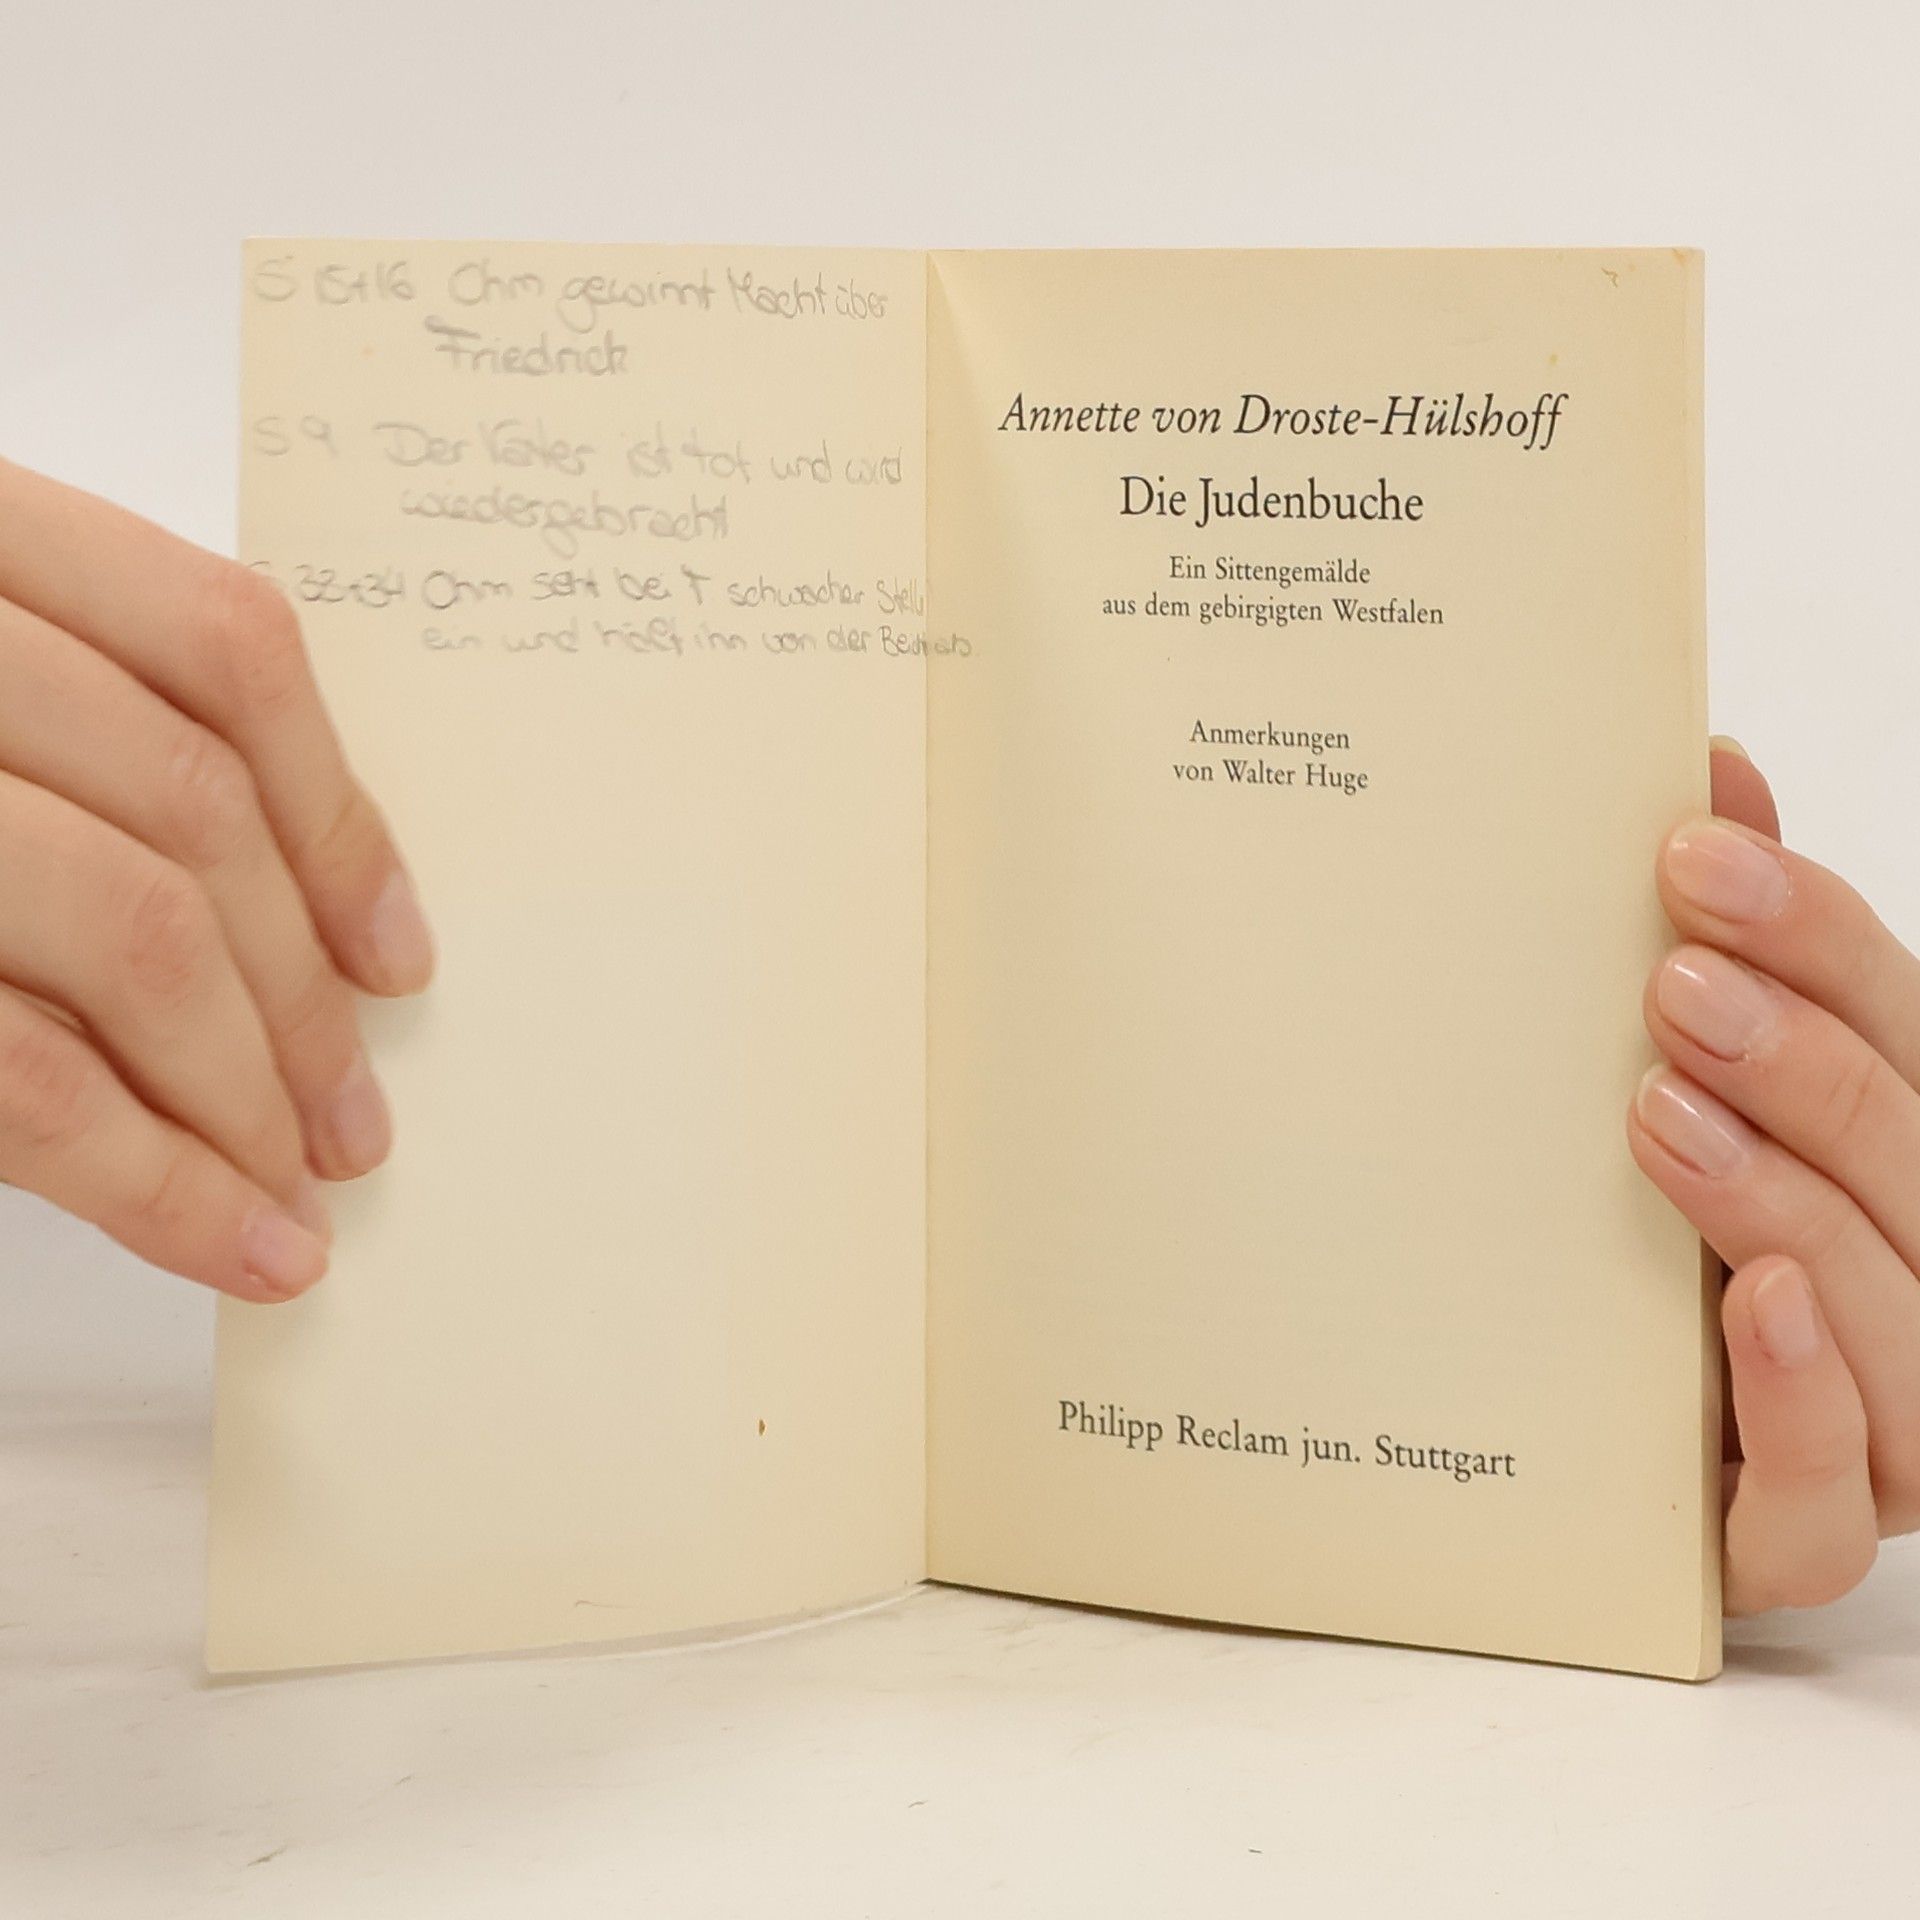 S 15+16 Ohm gewinnt Macht über
Friedrich
S 9 Der Vater ist tot und wird
wiedergebracht
33+34 Ohm seht bei F schwacher Stelle
ein und hält ihn von der
Annette von Droste-Hülshoff
Die Judenbuche
Ein Sittengemälde
aus dem gebirgigten Westfalen
Anmerkungen
von Walter Huge
Philipp Reclam jun. Stuttgart